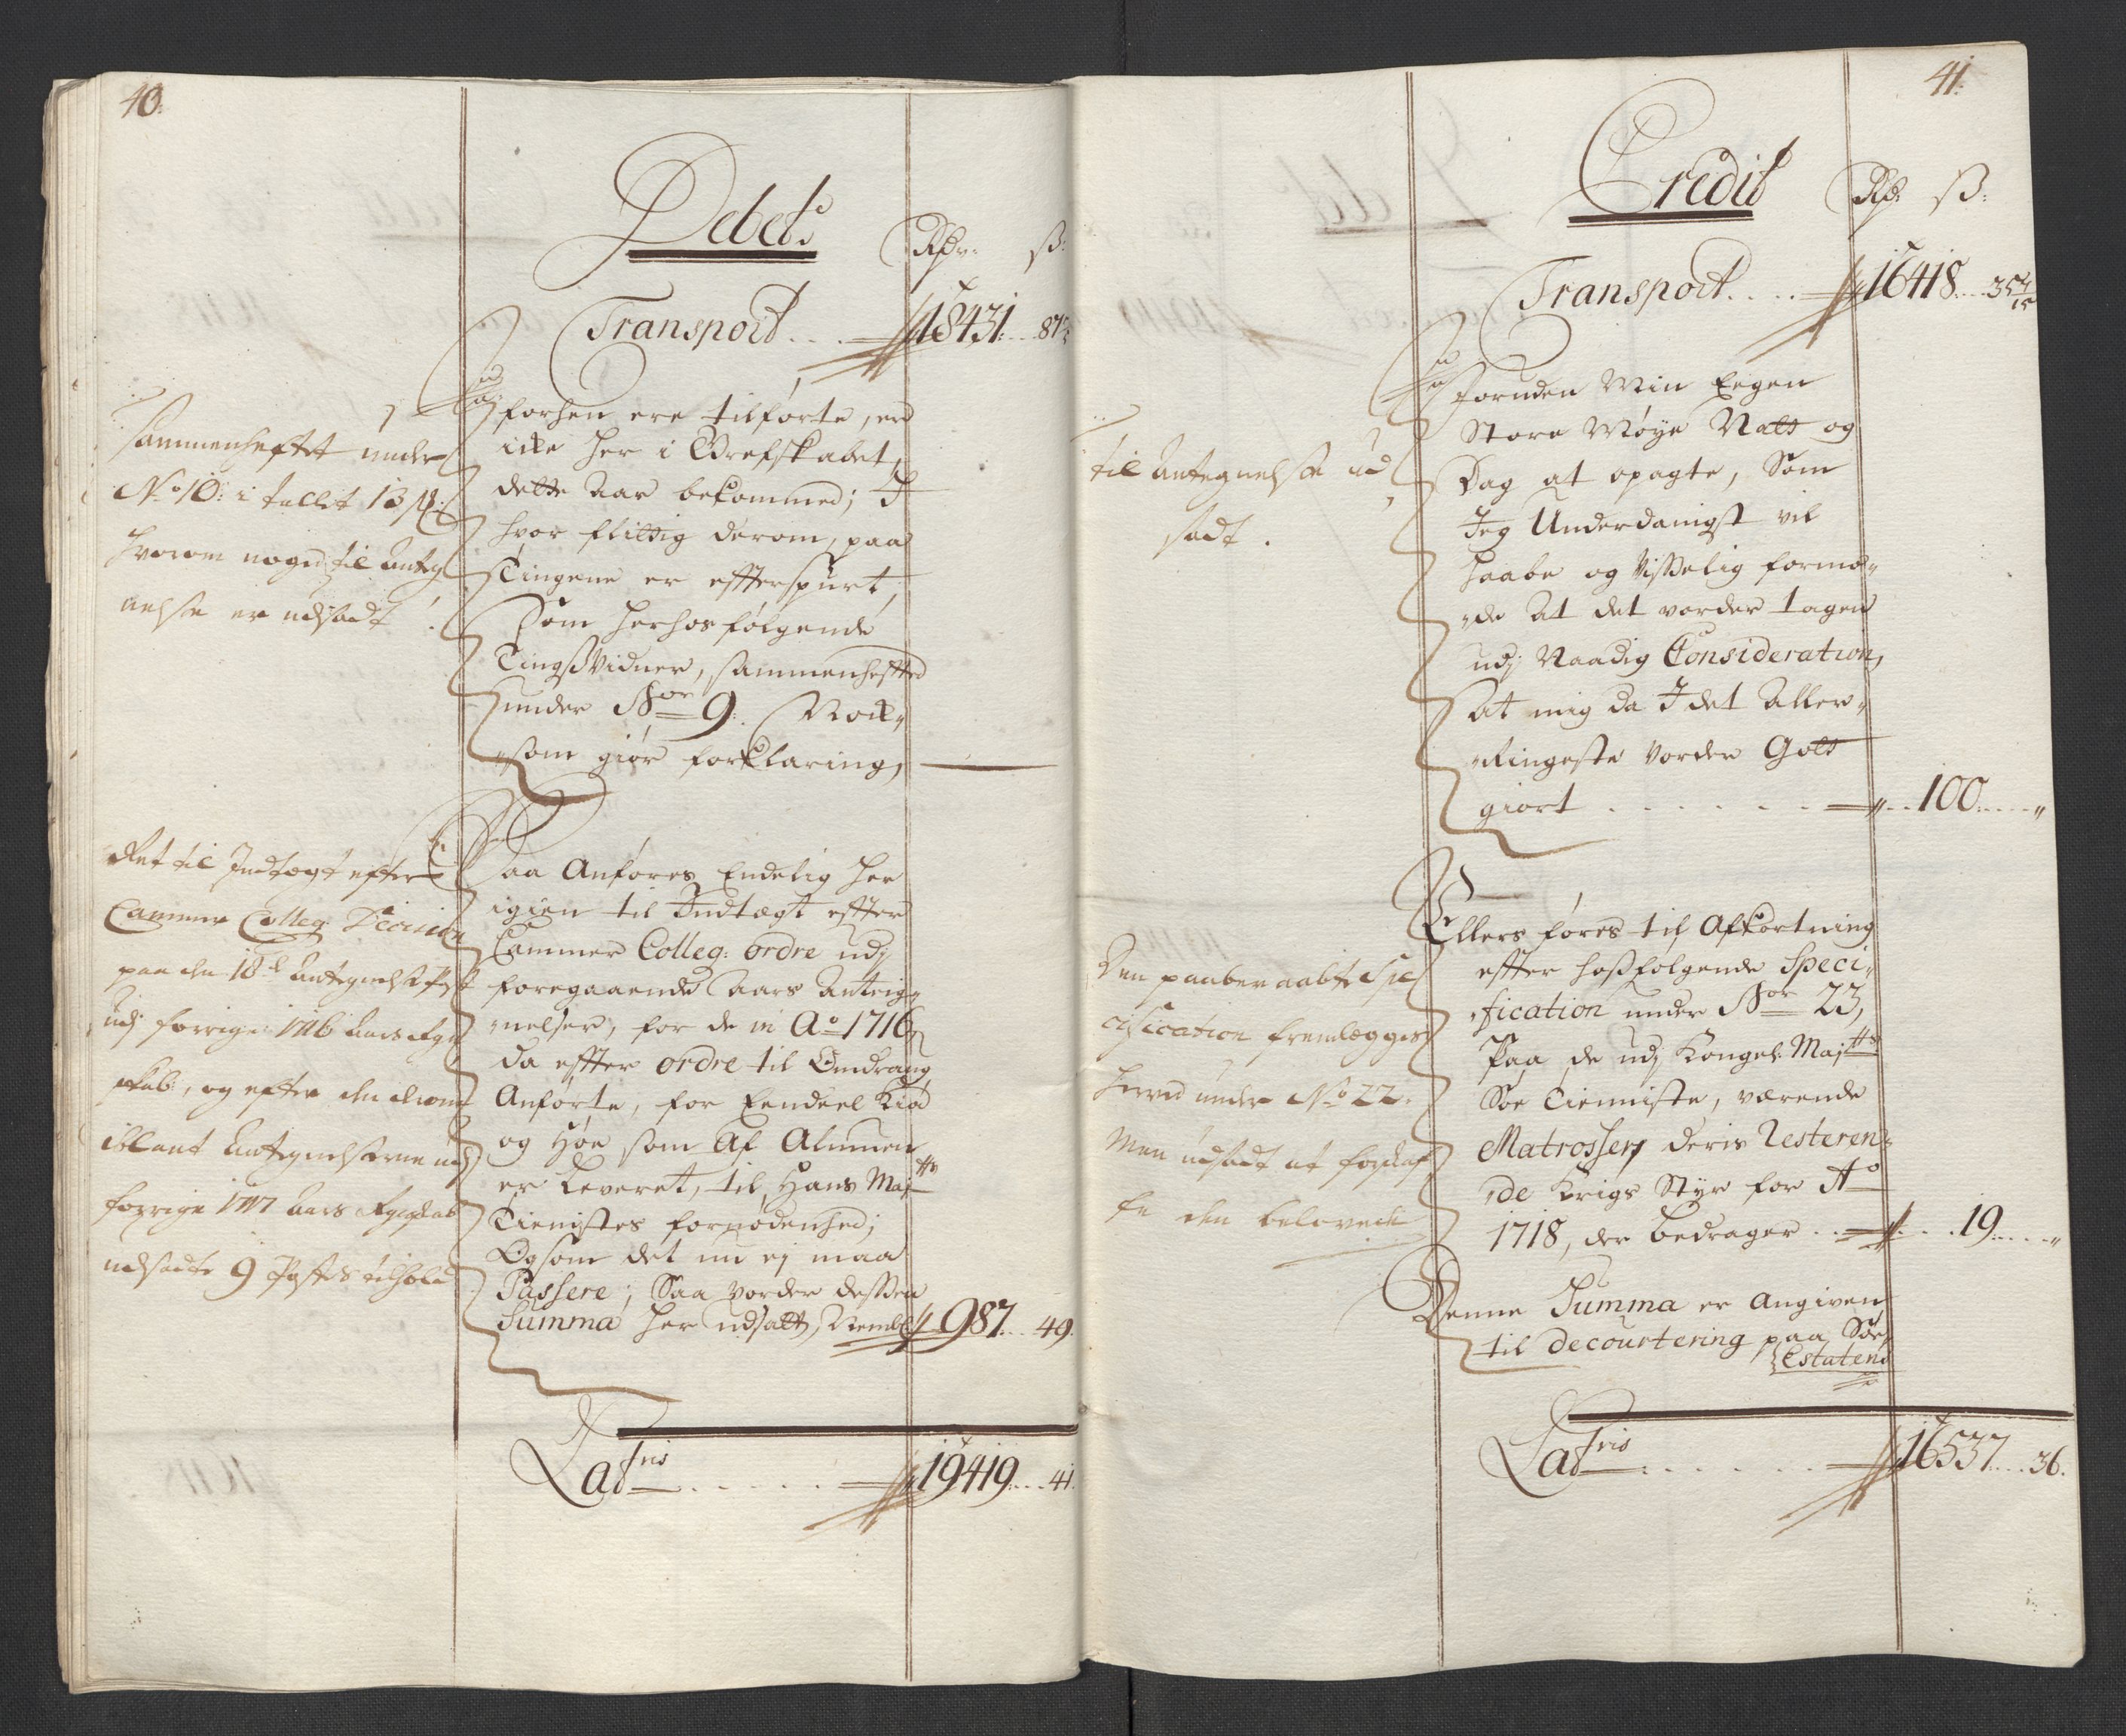 40.
Debet.
Rdr. ß:
Transport.... 18431...87
sammenheftet under
No 10: i tallet 13
hvorom noget til Anteg
nelse er udsadt
forhen ere tilførte, end
icke her i Grefskabet,
dette Aar bekommed; I
hvor flittig derom, paa
Tingene er effterspurt
Som herhos følgende
TingsVidner, sammenhefted
under Nor 9. Nock„
„som giør forklaring,
Ret til Indtægt efter
Cammer Colleg: Decision
paa den 18de Antegnelse Post
udj forrige 1716 Aars Regn
skab, og efter den derom
iblant Antegnelserne udj
forrige 1717 Aars Regnskab
udsadte 9 Postes tilhold
Saa Anføres Endelig her
igien til Indtægt effter
Cammer Colleg: ordre udj
foregaaende Aars Anteig„
„nelser, for de in Ao 1716
da effter ordre til Omdrang
Anførte, for Eendeel Kiød
og Høe som Af Almuen
er Leveret, til Hans Majts
Tienistes fornødenhed;
Og som det nu ej maa
Passere; Saa vorder dessen
Summa her udsatt, Nembl 987...49.
Latris..... 19419...41.
41.
Credit
Rdr. ß:
Transport.... 16418...35
til Antegnelse ud
sadt.
foruden Min Eegen
Store Møye Natt og
Dag at opagte, Som
Jeg Underdanigst vil
haabe og Visselig formo„
„de At det vorder tagen
udj Naadig Consideration,
At mig da I det Aller„
„Ringeste Vorder Gott
giort ...... 100....„
Den paaberaabte Spe
cification fremlegges
herved under No 22.
Men udsadt at forskaf
fe den belovede
Ellers føres til Afkortning
effter hoßfølgende Speci„
„fication under Nor 23,
Paa de udj Kongel: Majts
Søe Tienniste, værende
Matrosser, deris Resteren„
„de Krigs Styr for Ao
1718, der bedrager .... 19....„
Denne Summa er Angiven
til decourtering paa Søe
Estaten
Latris...... 16537...36.